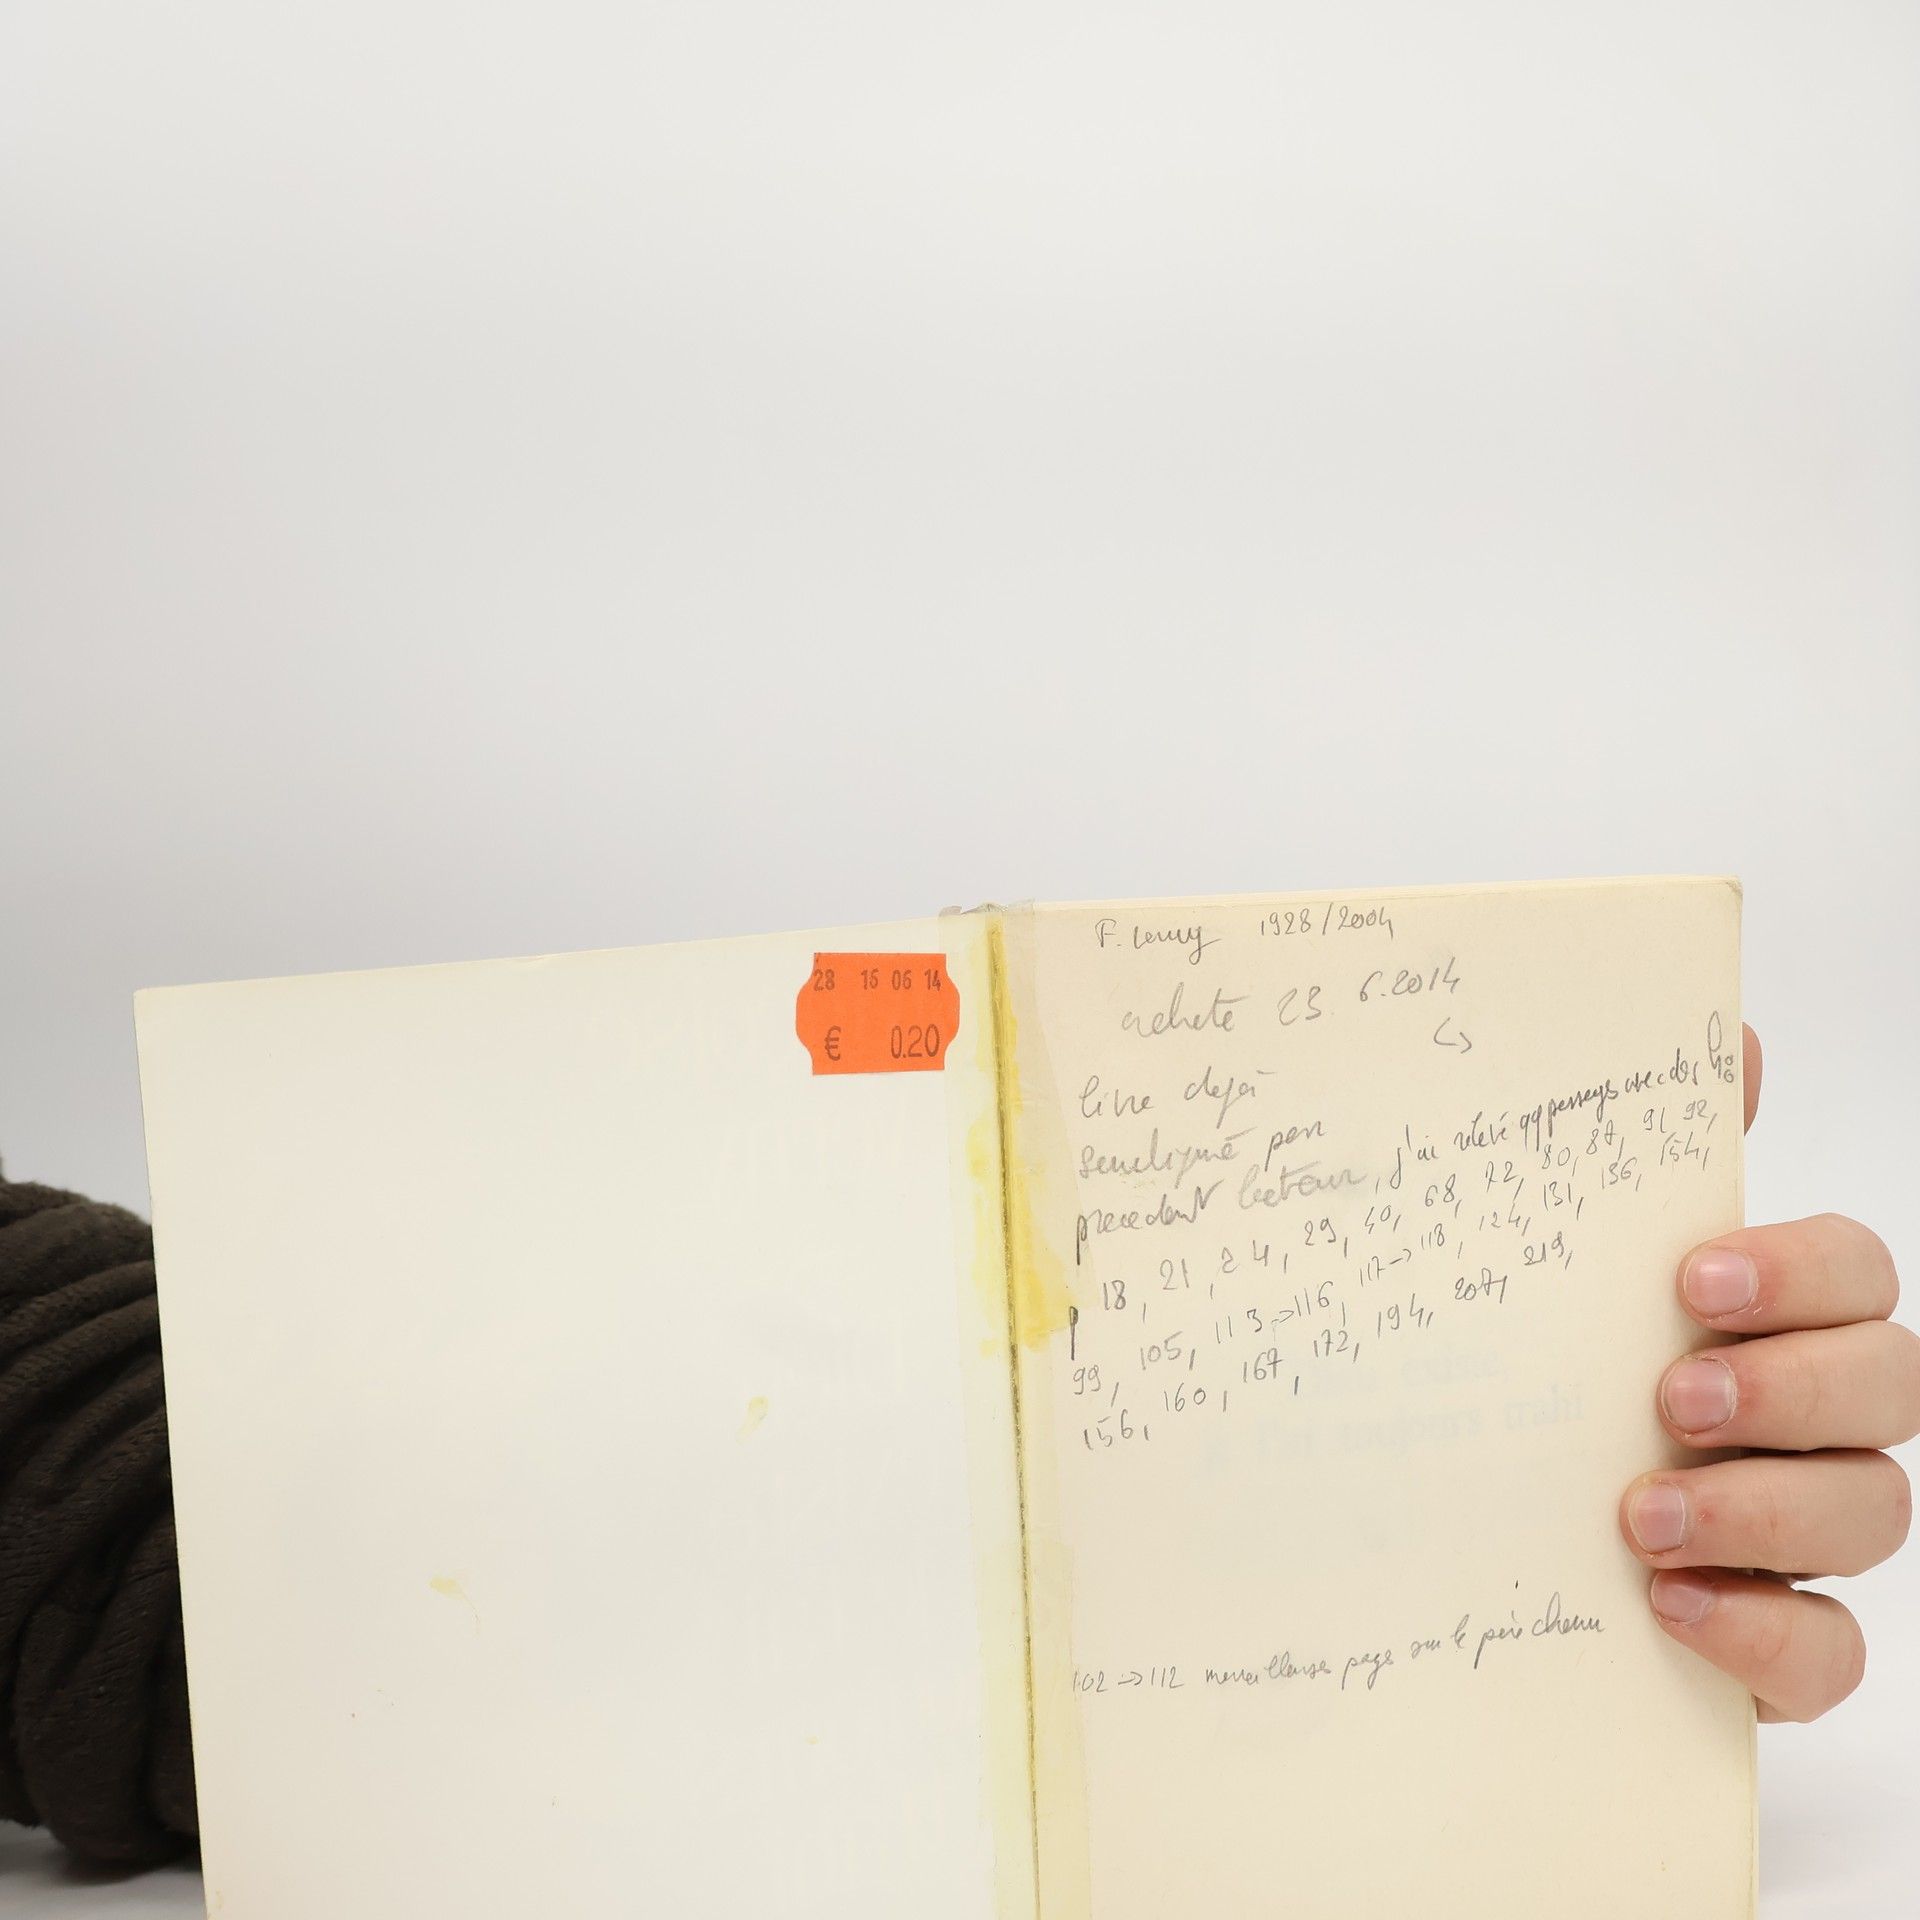 28 16 06 14
€ 0.20
F. Leruy 1928/2004
acheté 23.6.2014
↪
livre dejà
souligné par
precedent lecteur, j'ai relevé qq passages avec des
p 18, 21, 24, 29, 40, 68, 72, 80, 87, 91 92,
99, 105, 113→116, 117→118, 124, 131, 136, 154,
156, 160, 167, 172, 194, 207, 219,
102→112 merveilleuses pages sur le père chenu